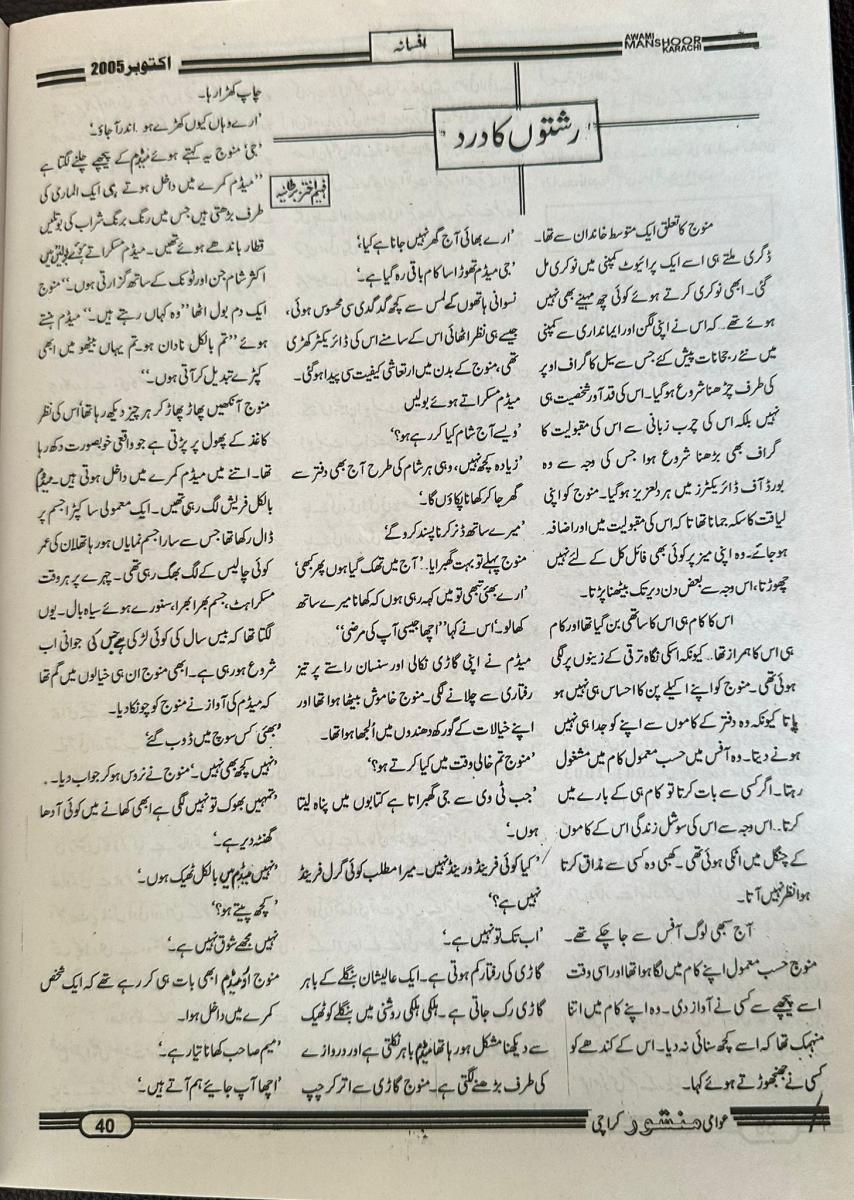 افسانہ
AWAMI
MANSHOOR
KARACHI
اکتوبر 2005
"رشتوں کا درد"
فہیم اختر برطانیہ
منوج کا تعلق ایک متوسط خاندان سے تھا۔
ڈگری ملتے ہی اسے ایک پرائیوٹ کمپنی میں نوکری مل
گئی۔ ابھی نوکری کرتے ہوئے کوئی چھ مہینے بھی نہیں
ہوئے تھے۔ کہ اس نے اپنی لگن اور ایمانداری سے کمپنی
میں نئے رجحانات پیش کئے جس سے سیل کا گراف اوپر
کی طرف چڑھنا شروع ہوگیا۔ اس کی قد آور شخصیت ہی
نہیں بلکہ اس کی چرب زبانی سے اس کی مقبولیت کا
گراف بھی بڑھنا شروع ہوا جس کی وجہ سے وہ
بورڈ آف ڈائریکٹرز میں ہردلعزیز ہوگیا۔ منوج کو اپنی
لیاقت کا سکہ جمانا تھا تا کہ اس کی مقبولیت میں اور اضافہ
ہوجائے۔ وہ اپنی میز پر کوئی بھی فائل کل کے لئے نہیں
چھوڑتا، اس وجہ سے بعض دن دیر تک بیٹھنا پڑتا۔
اس کا کام ہی اس کا ساتھی بن گیا تھا اور کام
ہی اس کا ہمراز تھا۔ کیونکہ اسکی نگاہ ترقی کے زینوں پر لگی
ہوئی تھی۔ منوج کو اپنے اکیلے پن کا احساس ہی نہیں ہو
پاتا کیونکہ وہ دفتر کے کاموں سے اپنے کو جدا ہی نہیں
ہونے دیتا۔ وہ آفس میں حسب معمول کام میں مشغول
رہتا۔ اگر کسی سے بات کرتا تو کام ہی کے بارے میں
کرتا۔۔ اس وجہ سے اس کی سوشل زندگی اس کے کاموں
کے چنگل میں اٹکی ہوئی تھی۔ کبھی وہ کسی سے مذاق کرتا
ہوا نظر نہیں آتا۔
آج سبھی لوگ آفس سے جا چکے تھے۔
منوج حسب معمول اپنے کام میں لگا ہوا تھا اور اسی وقت
اسے پیچھے سے کسی نے آواز دی۔ وہ اپنے کام میں اتنا
منہمک تھا کہ اسے کچھ سنائی نہ دیا۔ اس کے کندھے کو
کسی نے جھنجھوڑتے ہوئے کہا۔
'ارے بھائی آج گھر نہیں جانا ہے کیا،'
'جی میڈم تھوڑا سا کام باقی رہ گیا ہے۔'
نسوانی ہاتھوں کے لمس سے کچھ گدگدی سی محسوس ہوئی،
جیسے ہی نظر اٹھائی اس کے سامنے اس کی ڈائریکٹر کھڑی
تھی، منوج کے بدن میں ارتعاشی کیفیت سی پیدا ہوگئی۔
میڈم مسکراتے ہوئے بولیں
'ویسے آج شام کیا کر رہے ہو؟'
'زیادہ کچھ نہیں، وہی ہر شام کی طرح آج بھی دفتر سے
گھر جا کر کھانا پکاؤں گا۔'
'میرے ساتھ ڈنر کرنا پسند کرو گے'
منوج پہلے تو بہت گھبرایا۔ 'آج میں تھک گیا ہوں پھر کبھی'
'ارے بھئی تبھی تو میں کہہ رہی ہوں کہ کھانا میرے ساتھ
کھالو۔' اس نے کہا "اچھا جیسی آپ کی مرضی"
میڈم نے اپنی گاڑی نکالی اور سنسان راستے پر تیز
رفتاری سے چلانے لگی۔ منوج خاموش بیٹھا ہوا تھا اور
اپنے خیالات کے گورکھ دھندوں میں اُلجھا ہوا تھا۔
'منوج تم خالی وقت میں کیا کرتے ہو؟'
'جب ٹی وی سے جی گھبراتا ہے کتابوں میں پناہ لیتا
ہوں۔'
'کیا کوئی فرینڈ ورینڈ نہیں۔ میرا مطلب کوئی گرل فرینڈ
نہیں ہے؟'
'اب تک تو نہیں ہے۔'
گاڑی کی رفتار کم ہوتی ہے۔ ایک عالیشان بنگلے کے باہر
گاڑی رک جاتی ہے۔ ہلکی ہلکی روشنی میں بنگلے کو ٹھیک
سے دیکھنا مشکل ہو رہا تھا میڈم باہر نکلتی ہے اور دروازے
کی طرف بڑھنے لگتی ہے۔ منوج گاڑی سے اتر کر چپ
چاپ کھڑا رہا۔
'ارے وہاں کیوں کھڑے ہو۔ اندر آجاؤ۔'
'جی' منوج یہ کہتے ہوئے میڈم کے پیچھے چلنے لگتا ہے
"میڈم کمرے میں داخل ہوتے ہی ایک الماری کی
طرف بڑھتی ہیں جس میں رنگ برنگ شراب کی بوتلیں
قطار باندھے ہوئے تھیں۔ میڈم مسکراتے ہوئے بولیں میں
اکثر شام جن اور ٹونک کے ساتھ گزارتی ہوں۔" منوج
ایک دم بول اٹھا "وہ کہاں رہتے ہیں۔" میڈم ہنستے
ہوئے "تم بالکل نادان ہو۔ تم یہاں بیٹھو میں ابھی
کپڑے تبدیل کر آتی ہوں۔"
منوج آنکھیں پھاڑ پھاڑ کر ہر چیز دیکھ رہا تھا اُس کی نظر
کاغذ کے پھول پر پڑتی ہے جو واقعی خوبصورت دکھ رہا
تھا۔ اتنے میں میڈم کمرے میں داخل ہوتی ہیں۔ میڈم
بالکل فریش لگ رہی تھیں۔ ایک معمولی سا کپڑا جسم پر
ڈال رکھا تھا جس سے سارا جسم نمایاں ہو رہا تھا ان کی عمر
کوئی چالیس کے لگ بھگ رہی تھی۔ چہرے پر ہر وقت
مسکراہٹ، جسم بھرا بھرا، سنورے ہوئے سیاہ بال۔ یوں
لگتا تھا کہ بیس سال کی کوئی لڑکی ہے جس کی جوانی اب
شروع ہورہی ہے۔ ابھی منوج ان ہی خیالوں میں گم تھا
کہ میڈم کی آواز نے منوج کو چونکا دیا۔
'بھئی کس سوچ میں ڈوب گئے'
'نہیں کچھ بھی نہیں۔' منوج نے نروس ہوکر جواب دیا۔
'تمہیں بھوک تو نہیں لگی ہے ابھی کھانے میں کوئی آدھا
گھنٹہ دیر ہے۔'
'نہیں میڈم میں بالکل ٹھیک ہوں۔'
'کچھ پیتے ہو؟'
نہیں مجھے شوق نہیں ہے۔'
منوج اور میڈم ابھی بات ہی کر رہے تھے کہ ایک شخص
کمرے میں داخل ہوا۔
'میم صاحب کھانا تیار ہے۔'
'اچھا آپ جایئے ہم آتے ہیں۔'
عوامی منشور کراچی
40